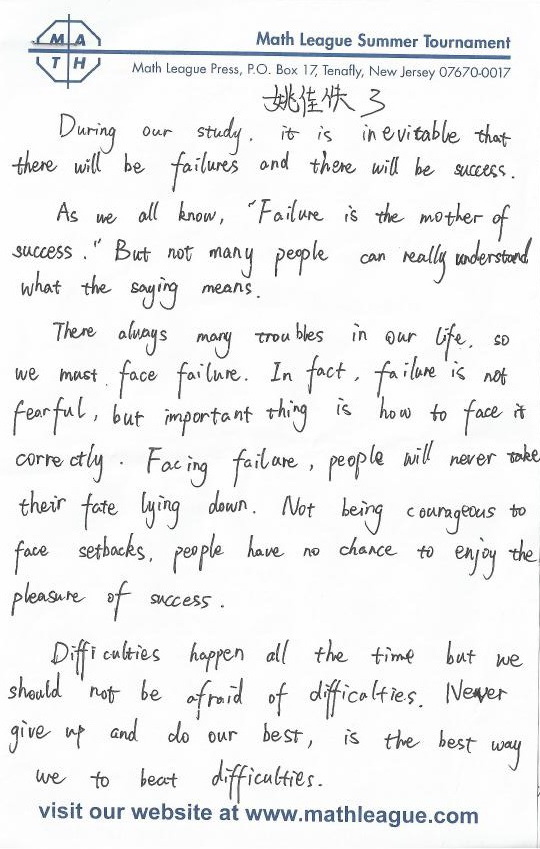 MA
TH
Math League Summer Tournament
Math League Press, P.O. Box 17, Tenafly, New Jersey 07670-0017
姚佳佚 3
During our study. it is inevitable that
there will be failures and there will be success.
As we all know, "Failure is the mother of
success." But not many people can really understand
what the saying means.
There always many troubles in our life, so
we must face failure. In fact, failure is not
fearful, but important thing is how to face it
correctly. Facing failure, people will never take
their fate lying down. Not being courageous to
face setbacks, people have no chance to enjoy the
pleasure of success.
Difficulties happen all the time but we
should not be afraid of difficalties. Never
give up and do our best, is the best way
we to beat difficulties.
visit our website at www.mathleague.com